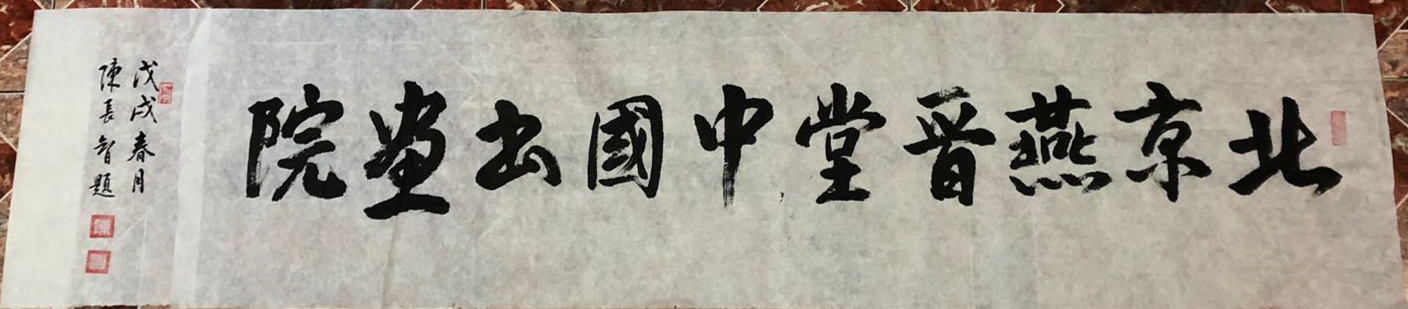 北京燕晉堂中國书畫院
戊戌春月
陳長智題